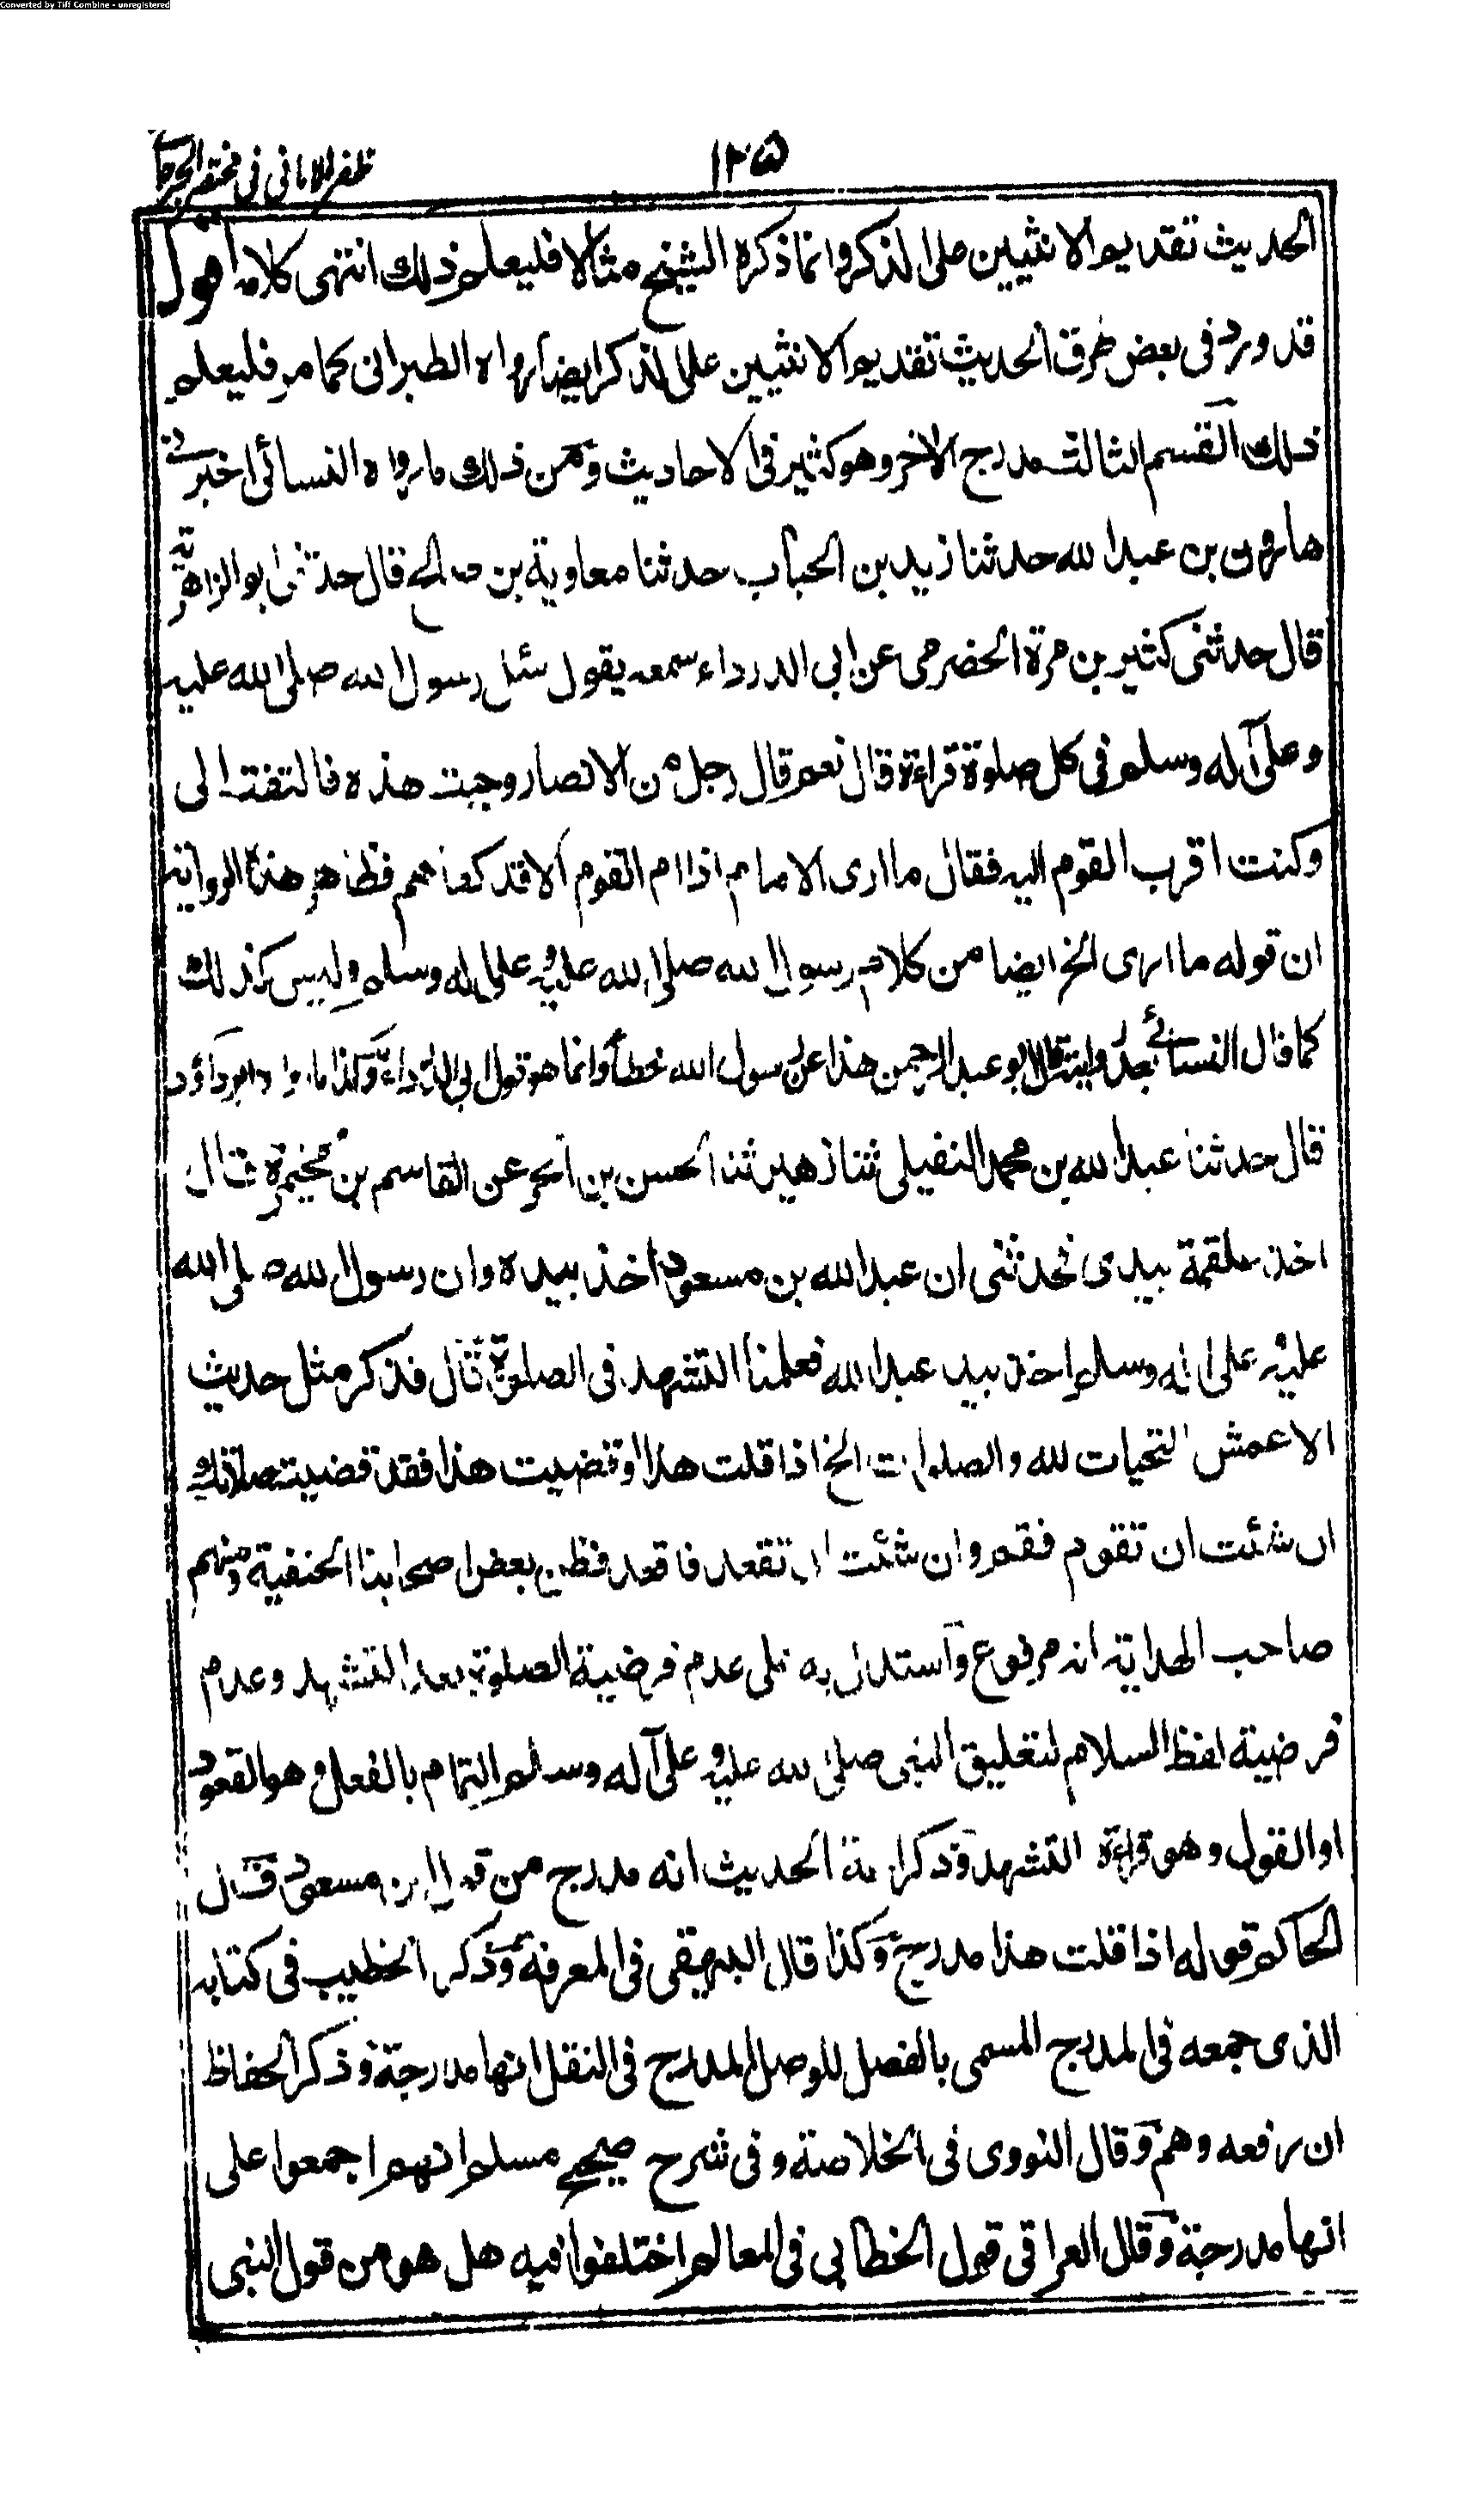 Converted by Tiff Combine - unregistered
١٢٥
ظفر الامانى فى مختصر الجرجانى
الحديث تقديم الانثيين على الذكر وانما ذكره الشيخ مثالا فليعلم ذلك انتهى كلامه اقول
قد ورد فى بعض طرق الحديث تقديم الانثيين على الذكر ايضا رواه الطبرانى كما مر فليعلم
ذلك القسم الثالث مدرج الآخر وهو كثير فى الاحاديث ومن ذلك ما رواه النسائى اخبرنى
هارون بن عبد الله حدثنا زيد بن الحباب حدثنا معاوية بن صالح قال حدثنى ابو الزاهرية
قال حدثنى كثير بن مرة الحضرمى عن ابى الدرداء سمعه يقول سئل رسول الله صلى الله عليه
وعلى آله وسلم فى كل صلوة قراءة قال نعم قال رجل من الانصار وجبت هذه فالتفت الى
وكنت اقرب القوم اليه فقال ما ارى الامام اذا ام القوم الا قد كفاهم فظاهر هذه الرواية
ان قوله ما ارى الخ ايضا من كلام رسول الله صلى الله عليه وعلى آله وسلم وليس كذلك
كما قال النسائى بعد روايته قال ابو عبد الرحمن هذا عن رسول الله خطأ وانما هو قول ابى الدرداء وكذا ما رواه ابو داؤد
قال حدثنا عبد الله بن محمد النفيلى ثنا زهير ثنا الحسن بن الحر عن القاسم بن مخيمرة قال
اخذ علقمة بيدى فحدثنى ان عبد الله بن مسعود اخذ بيده وان رسول الله صلى الله
عليه وعلى آله وسلم اخذ بيد عبد الله فعلمنا التشهد فى الصلوة قال فذكر مثل حديث
الاعمش التحيات لله والصلوات الخ اذا قلت هذا او قضيت هذا فقد قضيت صلاتك
ان شئت ان تقوم فقم وان شئت ان تقعد فاقعد فظن بعض اصحابنا الحنفية ومنهم
صاحب الهداية انه مرفوع واستدل به على عدم فرضية الصلوة بعد التشهد وعدم
فرضية لفظ السلام لتعليق النبى صلى الله عليه وعلى آله وسلم التمام بالفعل وهو القعود
او القول وهو قراءة التشهد وذكر ائمة الحديث انه مدرج من قول ابن مسعود قال
الحاكم قوله اذا قلت هذا مدرج وكذا قال البيهقى فى المعرفة وذكر الخطيب فى كتابه
الذى جمعه فى المدرج المسمى بالفصل للوصل المدرج فى النقل انها مدرجة وذكر الحفاظ
ان رفعه وهم وقال النووى فى الخلاصة وفى شرح صحيح مسلم انهم اجمعوا على
انها مدرجة وقال العراقى قول الخطابى فى المعالم اختلفوا فيه هل هو من قول النبى